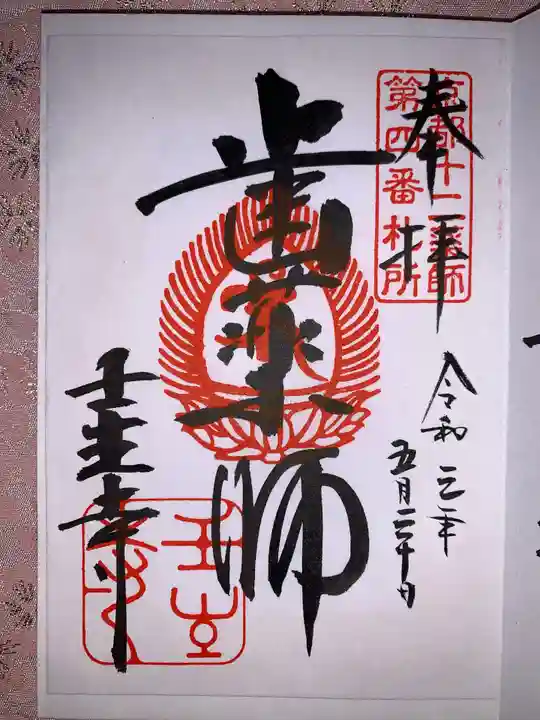 奉拝
京都十二薬師
第四番札所
令和元年
五月二十日
歯薬師
壬生寺
壬生